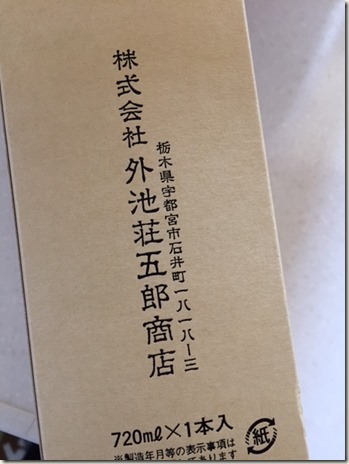 栃木県宇都宮市石井町一八一八ー三
株式会社 外池荘五郎商店
720mℓ×1本入
紙
※製造年月等の表示事項は
てあります